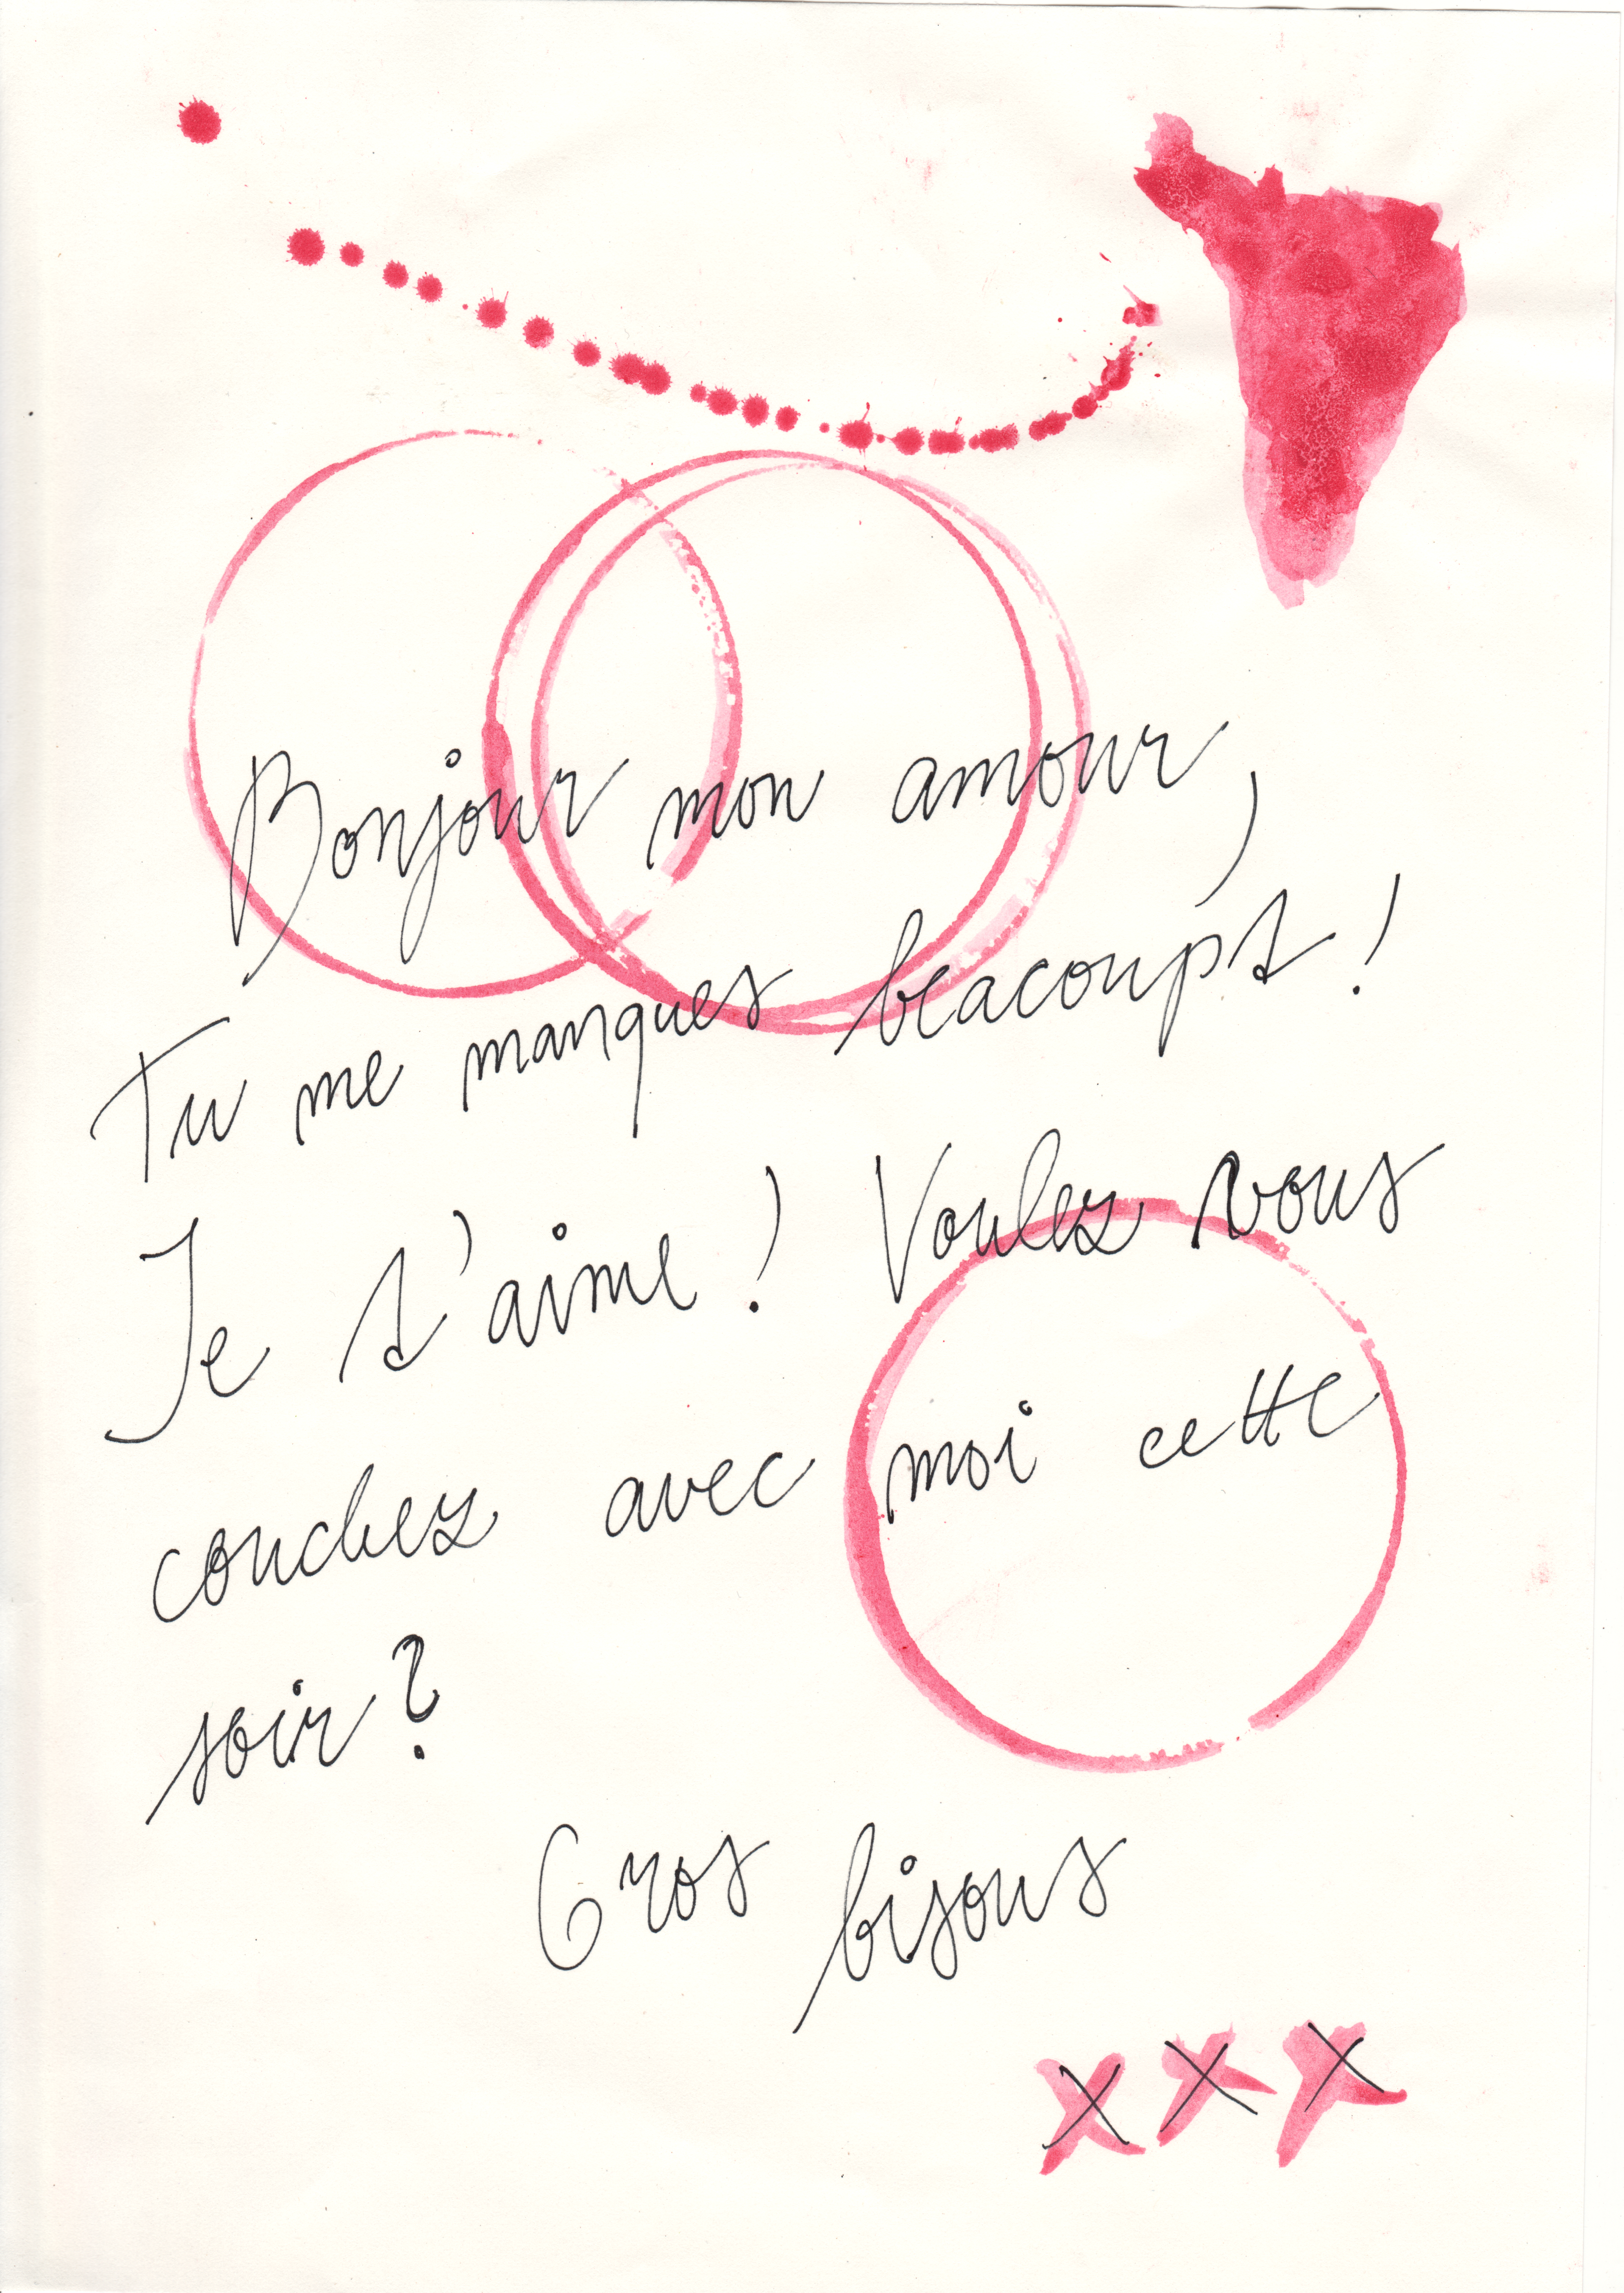 Bonjour mon amour,
Tu me manques beacoupt !
Je t'aime ! Voulez vous
couchez avec moi cette
soir ?
Gros bisous
x x x